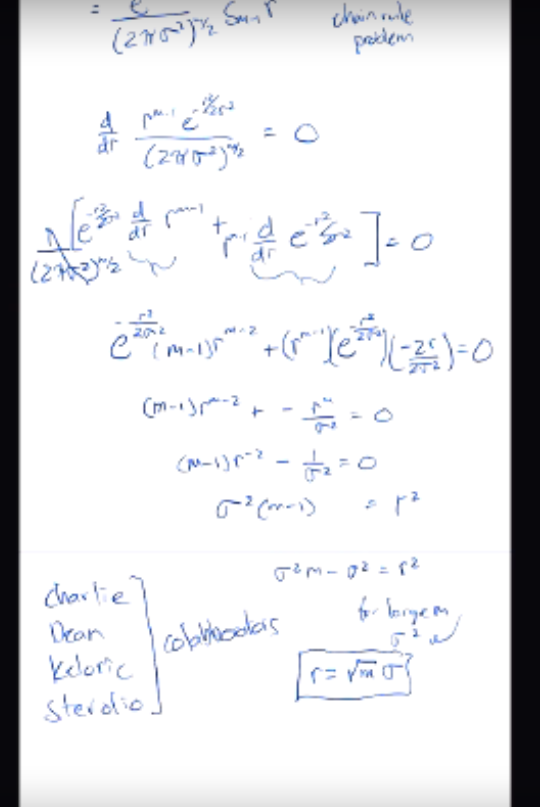 = e / (2πσ²)^m/2 Sm-1 r
chain rule
problem
d/dr r^m-1 e^-r²/2σ² / (2πσ²)^m/2 = 0
1/(2πσ²)^m/2 [e^-r²/2σ² d/dr r^m-1 + r^m-1 d/dr e^-r²/2σ²] = 0
e^-r²/2σ² (m-1)r^m-2 + (r^m-1)(e^-r²/2σ²)(-2r/2σ²) = 0
(m-1)r^m-2 + - r^m/σ² = 0
(m-1)r^-2 - 1/σ² = 0
σ²(m-1) = r²
σ²m - σ² = r²
for large m
σ²
r = √m σ
Charlie
Dean
Keloric
sterolio